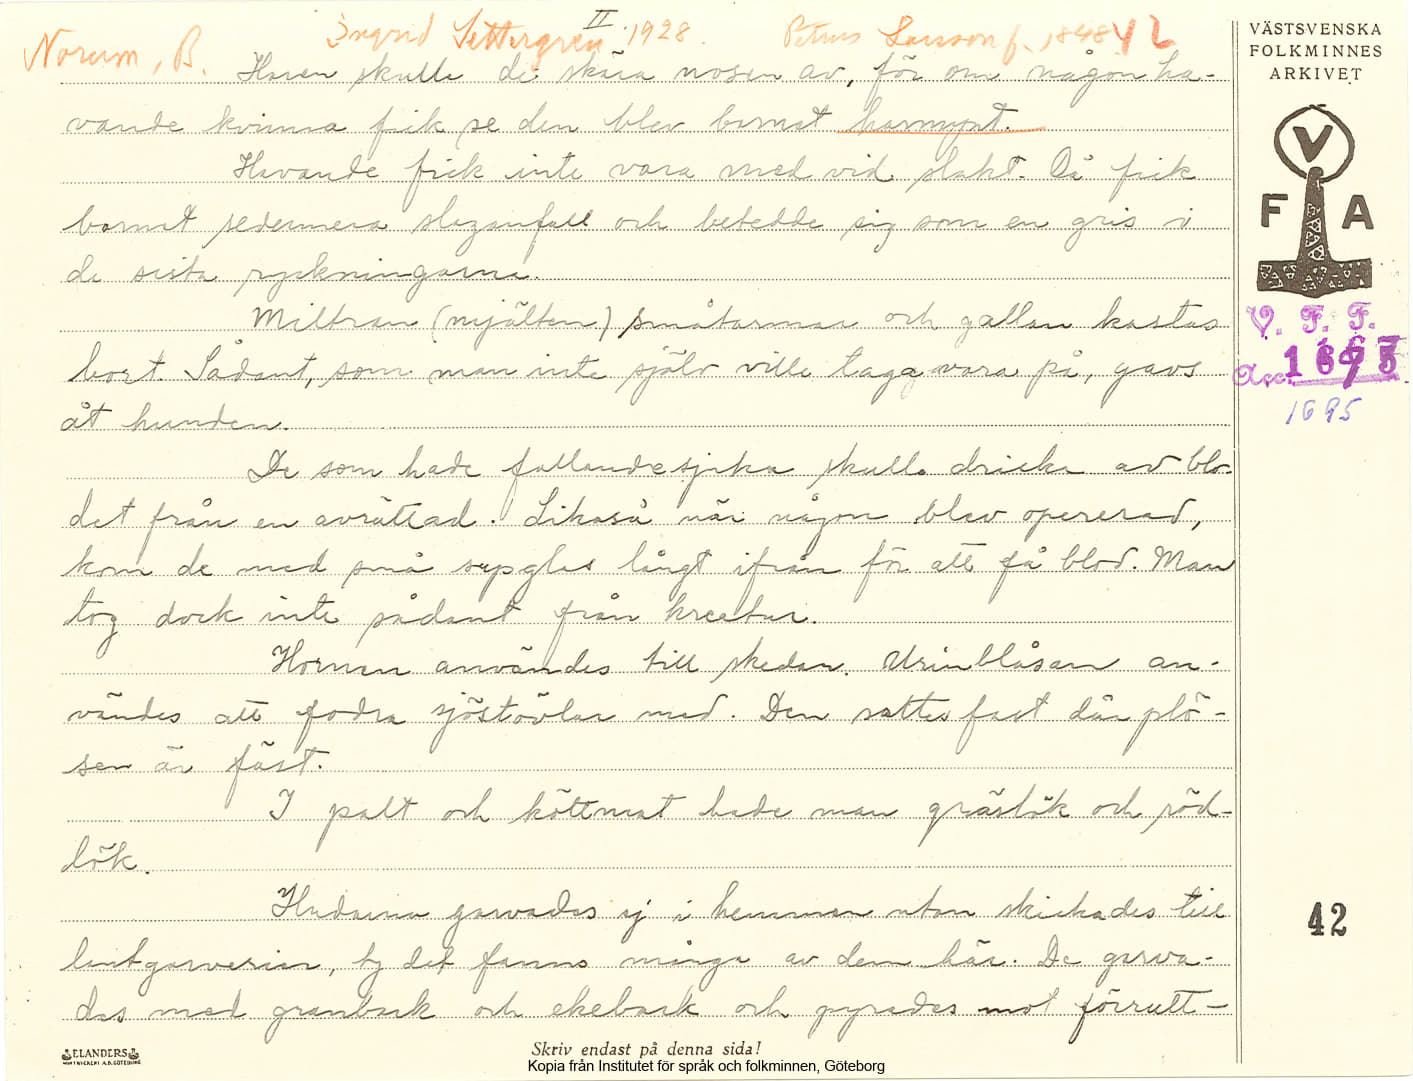 Norum, B. Ingrid Settergren II 1928. Petrus Larsson f. 1848 42
VÄSTSVENSKA
FOLKMINNES
ARKIVET
V
F A
V. F. F.
Acc. 1695
1695
Haren skulle de skära nosen av, för om någon ha-
vande kvinna fick se den blev barnet harmynt.
Havande fick inte vara med vid slakt. Då fick
barnet sedermera slaganfall och betedde sig som en gris i
de sista ryckningarna.
Miltran (mjälten) småtarmar och gallan kastas
bort. Sådant, som man inte själv ville taga vara på, gavs
åt hunden.
De som hade fallandesjuka skulle dricka av blo-
det från en avrättad. Likaså när någon blev opererad,
kom de med små supglas långt ifrån för att få blod. Man
tog dock inte sådant från kreatur.
Hornen användes till skedar. Urinblåsan an-
vändes att fodra sjöstövlar med. Den sattes fast där plö-
sen är fäst.
I palt och köttmat hade man gräslök och röd-
lök.
Hudarna garvades ej i hemmen utan skickades till
lantgarverier, ty det fanns många av dem här. De garva-
des med granbark och ekebark och pyrades mot förrutt-
42
ELANDERS
Skriv endast på denna sida!
Kopia från Institutet för språk och folkminnen, Göteborg